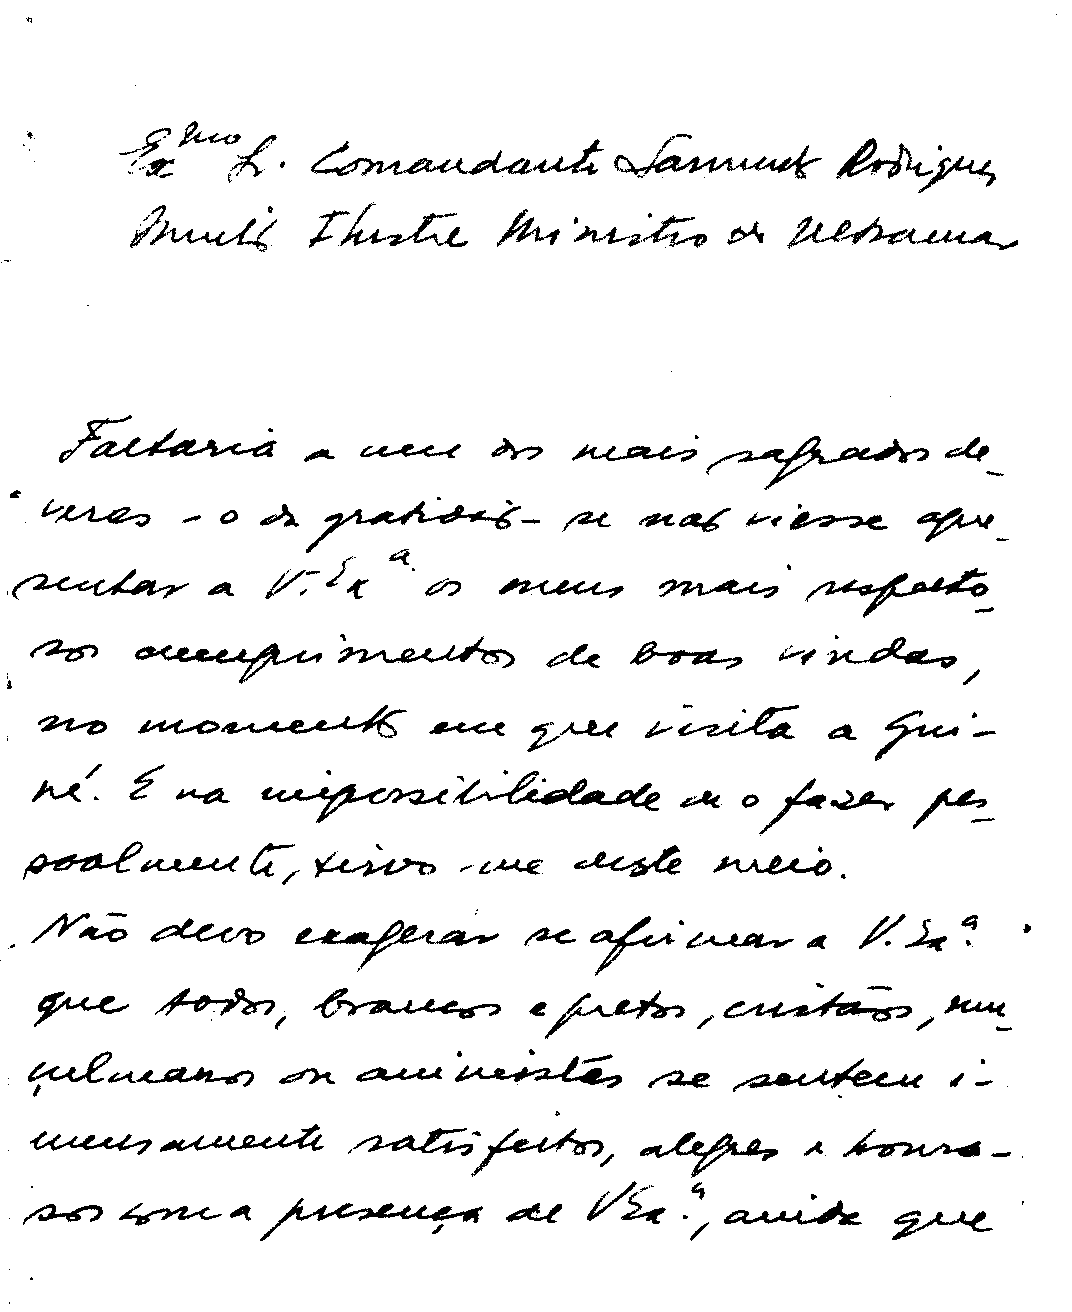 Exmo Sr. Comandante Sarmento Rodrigues
Muito Ilustre Ministro do Ultramar
Faltaria a um dos mais sagrados de-
veres - o da gratidão - se não viesse apre-
sentar a V. Exª os meus mais respeito-
sos cumprimentos de boas vindas,
no momento em que visita a Gui-
né. E na impossibilidade de o fazer pes-
soalmente, sirvo-me deste meio.
Não devo exagerar se afirmar a V. Exª.
que todos, brancos e pretos, cristãos, mu-
çulmanos ou animistas se sentem i-
mensamente satisfeitos, alegres e honra-
dos com a presença de V Exª., ainda que